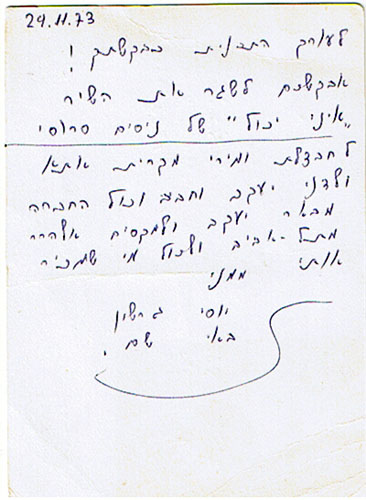 29.11.73
לעורך התכנית כבקשתך!
אבקשכם לשגר את השיר
"איני יכול" של ניסים סרוסי
לחבצלת ומירי מקרית אתא
ולדני יעקב וחבצ וכול החברה
מבאר יעקב ולמקסים אלהרר
מתל-אביב ולכול מי שמכיר
אותי ממני
יוסי גרשון
באי שם.